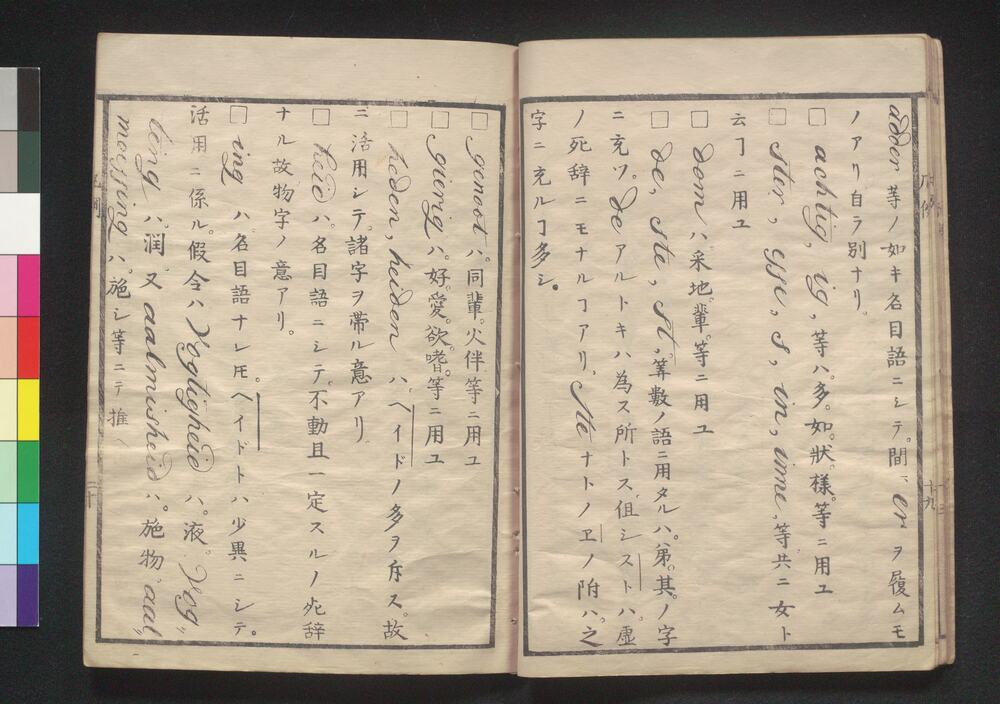 adder 等ノ如キ名目語ニシテ間 er ヲ履ムモ
ノアリ自ラ別ナリ
□ achtig, ig, 等ハ多。如。狀。樣。等ニ用ユ
□ ster, sse, s, in, inne, 等共ニ女ト
云ヿニ用ユ
□ dom ハ采地。輩。等ニ用ユ
□ de, ste, st, 筭數ノ語ニ用タルハ。第。其。ノ字
ニ充ツ。de アルトキハ為ス所トス但シストハ。虛
ノ死辞ニモナルヿアリ。ste ナトノヱノ附ハ。之
字ニ充ルヿ多シ。
□ genoot ハ。同輩。火伴等ニ用ユ
□ gierig ハ。好。愛。欲。嗜。等ニ用ユ
□ heden, heiden ハ。ヘイドノ多ヲ斥ス。故
ニ活用シテ。諸字ヲ帯ル意アリ
□ heid ハ。名目語ニシテ。不動且一定スルノ死辞
ナル故物字ノ意アリ。
□ ing ハ。名目語ナレ𪜈。ヘイドトハ少異ニシテ。
活用ニ係ル。假令ハ Vogtigheid ハ。液。Vog„
ting ハ。潤。又 aalmisheid ハ。施物 aal„
moissing ハ。施シ等ニテ推
凡例
十九
二十